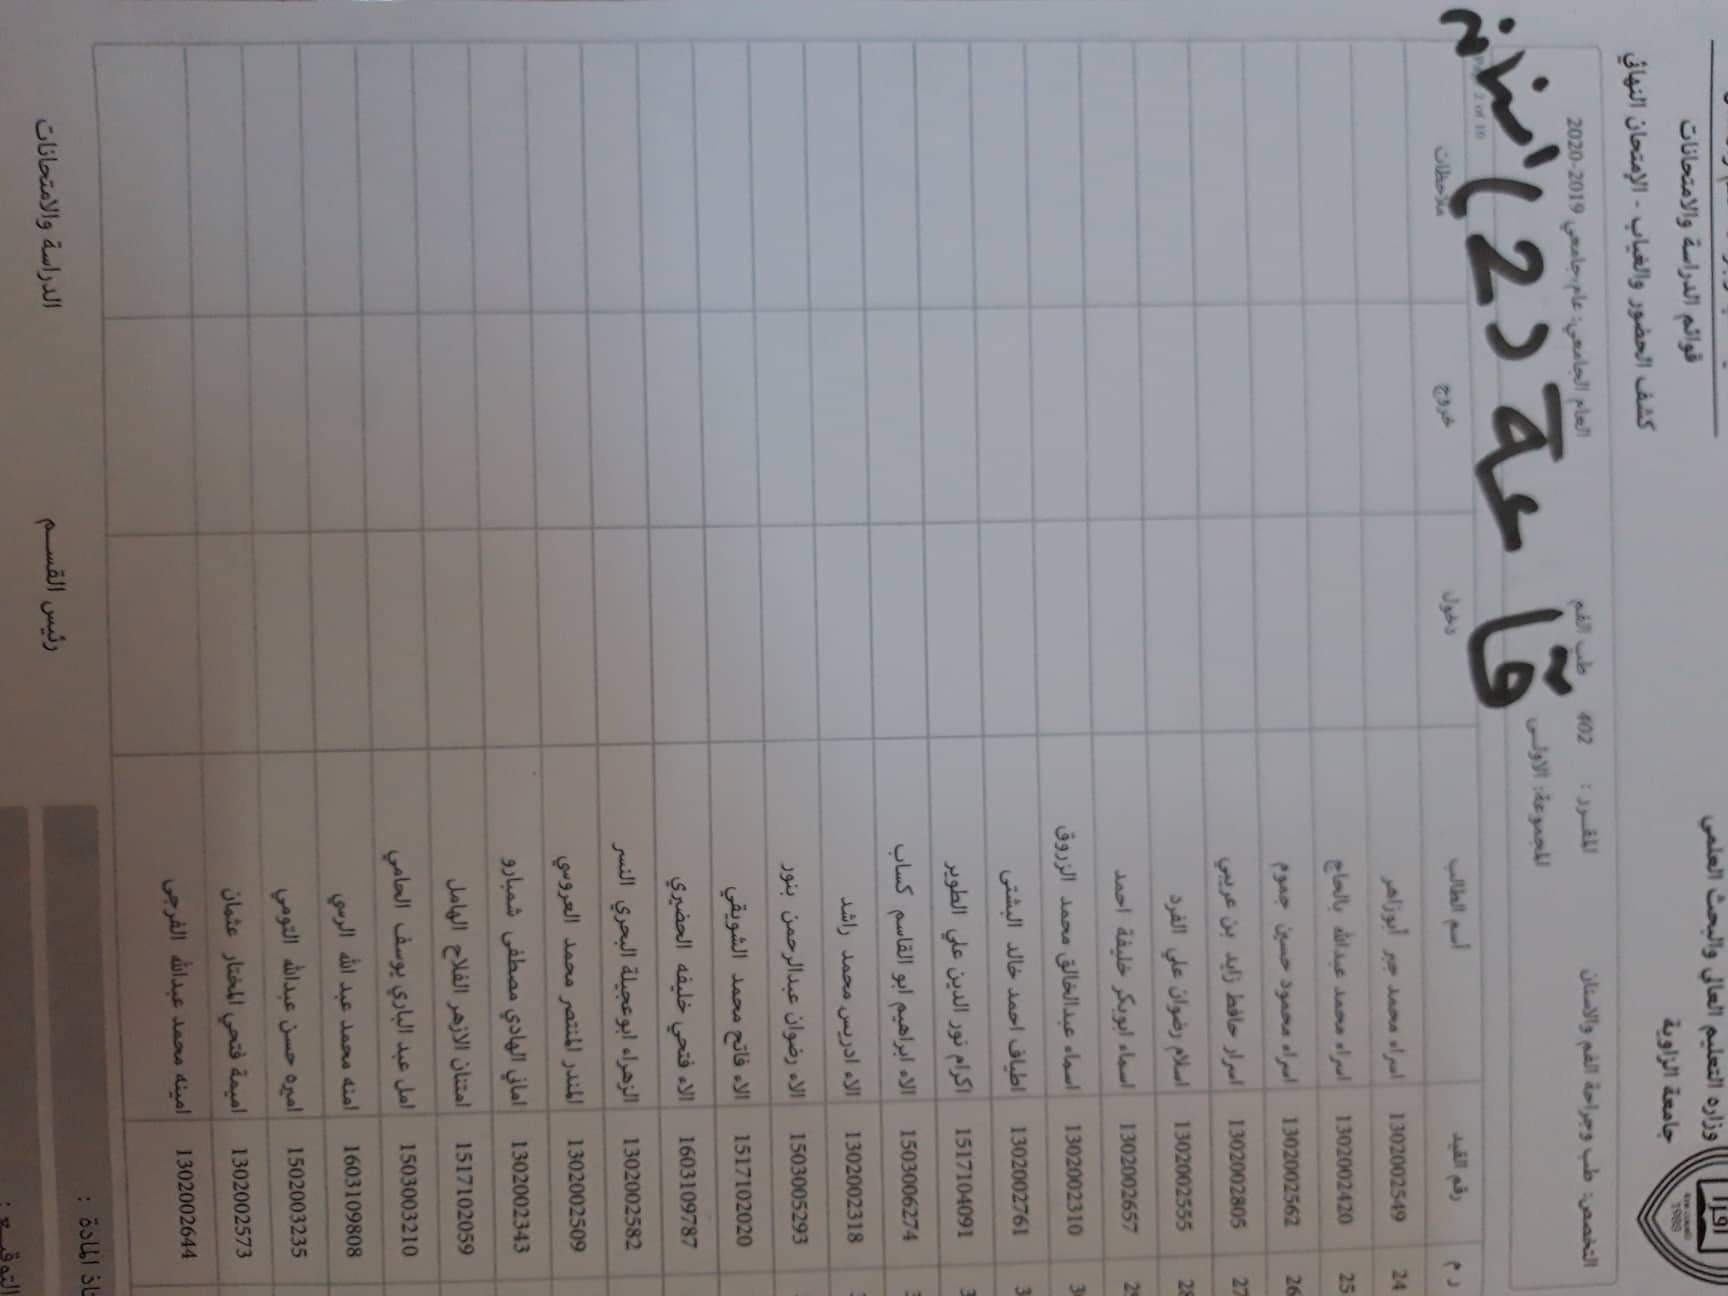 وزاره التعليم العالي والبحث العلمي
جامعة الزاوية
اقرأ
1988
قوائم الدراسة والامتحانات
كشف الحضور والغياب - الإمتحان النهائي
التخصص: طب وجراحة الفم والاسنان
المقـــرر : 402 طب الفم
العام الجامعي: عام جامعي 2019-2020
المجموعة: الاولـى
قاعة د2 / اسنان
ر م رقم القيد أسم الطالب دخول خروج ملاحظات
24 1302002549 اسراء محمد جبر أبوزاهر
25 1302002420 اسراء محمد عبدالله بالحاج
26 1302002562 اسراء محمود حسين جموم
27 1302002805 اسرار حافظ زايد بن عريبي
28 1302002555 اسلام رضوان علي الفرد
1302002657 اسماء ابوبكر خليفة احمد
1302002310 اسماء عبدالخالق محمد الزروق
1302002761 اطياف احمد خالد البشتى
1517104091 اكرام نور الدين علي الطوير
1503006274 الاء ابراهيم ابو القاسم كساب
1302002318 الاء ادريس محمد راشد
1503005293 الاء رضوان عبدالرحمن بنور
1517102020 الاء فاتح محمد الشويقي
1603109787 الاء فتحي خليفه الخضيري
1302002582 الزهراء ابوعجيلة البحري النسر
1302002509 المنذر المنتصر محمد العروسي
1302002343 اماني الهادي مصطفى شمبارو
1517102059 امتنان الازهر الفلاح الهامل
1503003210 امل عبد الباري يوسف الحامي
1603109808 امنه محمد عبد الله الرسي
1502003235 اميره حسن عبدالله التومي
1302002573 اميمة فتحي المختار عثمان
1302002644 امينه محمد عبدالله الفرجى
المادة :
رئيس القسـم
الدراسة والامتحانات
التوقيـــع :